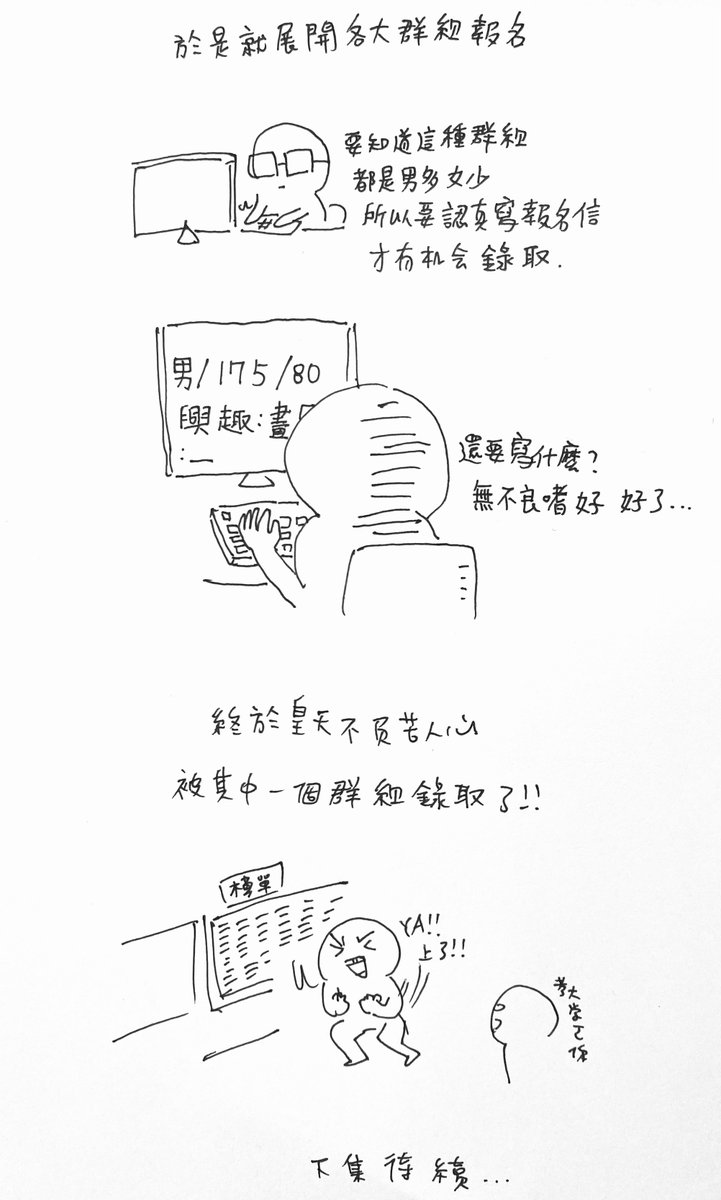 於是就展開各大群組報名
要知道這種群組
都是男多女少
所以要認真寫報名信
才有机会錄取.
男/175/80
興趣:畫
:_
還要寫什麼?
無不良嗜好 好了...
終於皇天不負苦人心
被其中一個群組錄取了!!
榜單
YA!!
上了!!
考大学
下集待續...